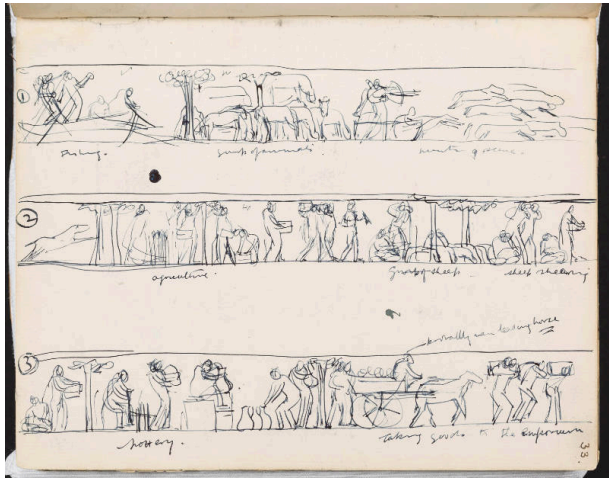 1
Fishing. group of animals hunting scene.
2
agriculture. Group of sheep sheep shearing
probably man leading horse
3
pottery. taking goods to the Emporium
33.